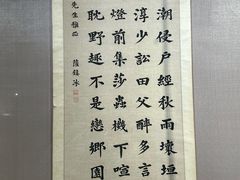 潮侵戶經秋雨壞垣
淳少訟田父醉多言
燈前集莎蟲機下喧
耽野趣不是戀鄉園
先生雅正